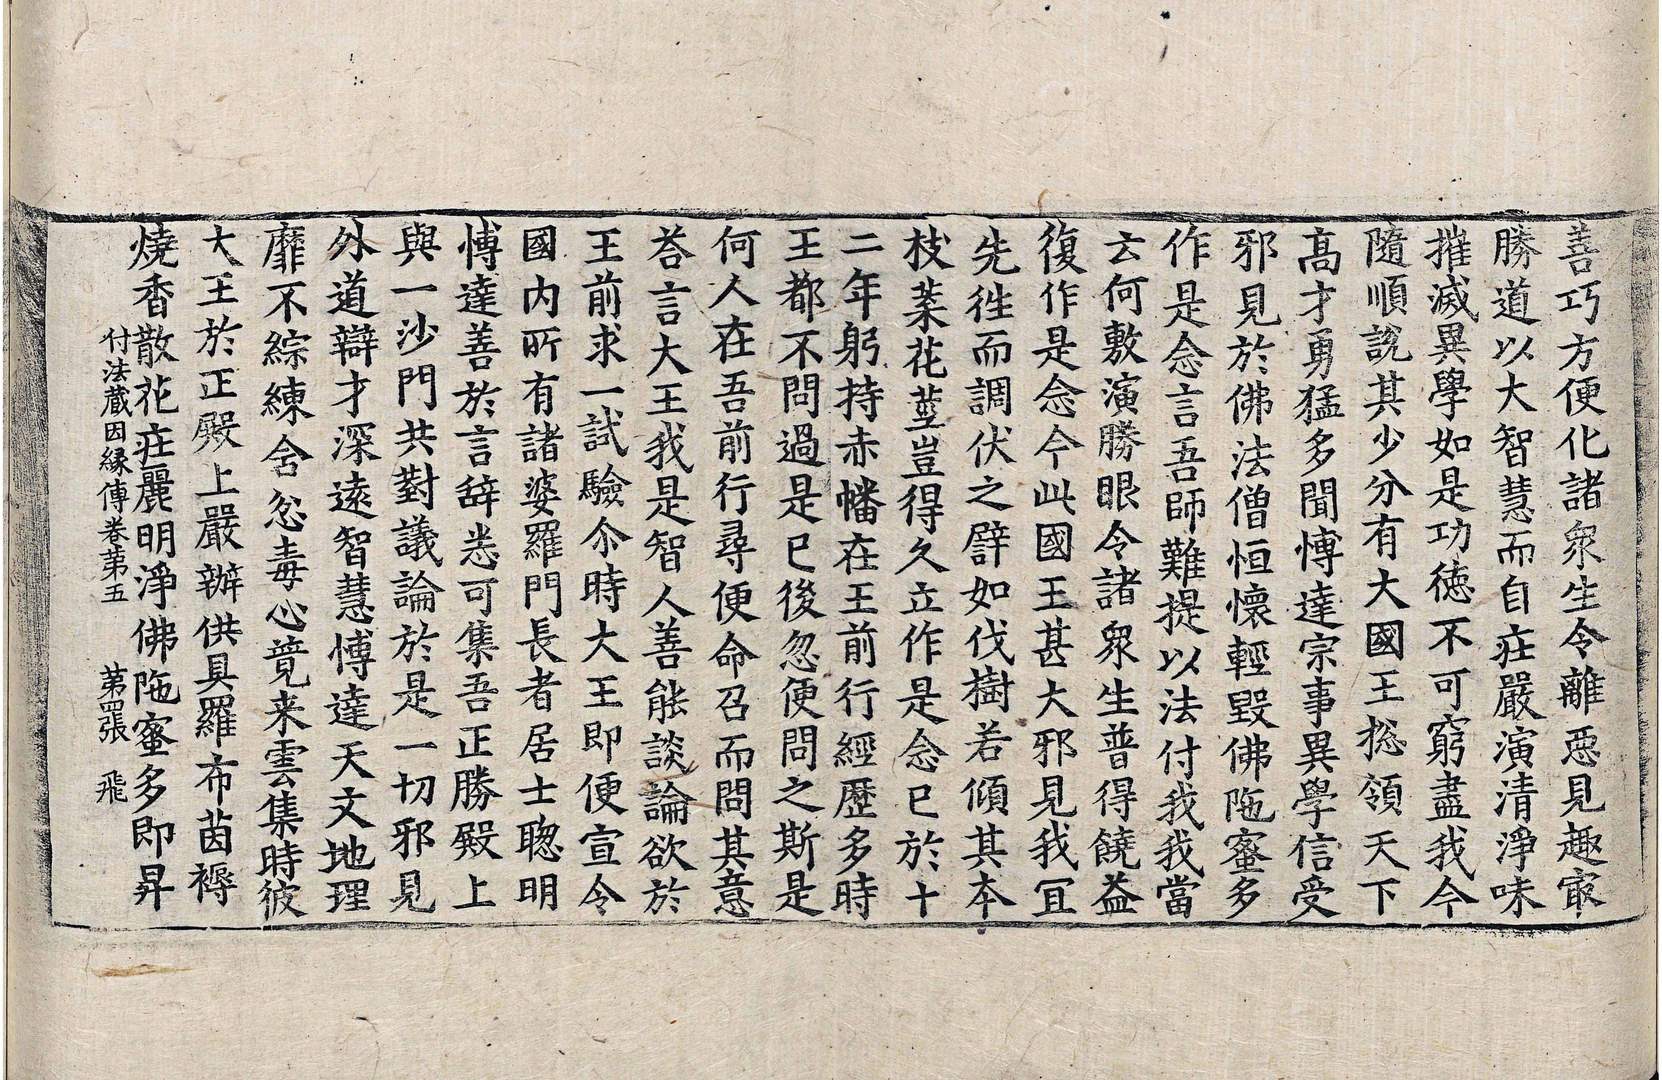 善巧方便化諸衆生令離惡見趣㝡
勝道以大智慧而自莊嚴演清淨味
摧滅異學如是功德不可窮盡我今
隨順說其少分有大國王捴領天下
髙才勇猛多聞愽達宗事異學信受
邪見於佛法僧恒懷輕毀佛陁蜜多
作是念言吾師難提以法付我我當
云何敷演勝眼令諸衆生普得饒益
復作是念今此國王甚大邪見我冝
先徃而調伏之譬如伐樹若傾其本
枝葉花莖豈得久立作是念已於十
二年躬持赤幡在王前行經歷多時
王都不問過是已後忽便問之斯是
何人在吾前行尋便命召而問其意
荅言大王我是智人善能談論欲於
王前求一試驗尒時大王即便宣令
國內所有諸婆羅門長者居士聡明
愽達善於言辝悉可集吾正勝殿上
與一沙門共對議論於是一切邪見
外道辯才深遠智慧愽達天文地理
靡不綜練含忿毒心競来雲集時彼
大王於正殿上嚴辦供具羅布茵褥
燒香散花莊麗明淨佛陁蜜多即昇
付法藏因緣傳卷苐五 苐四張 飛